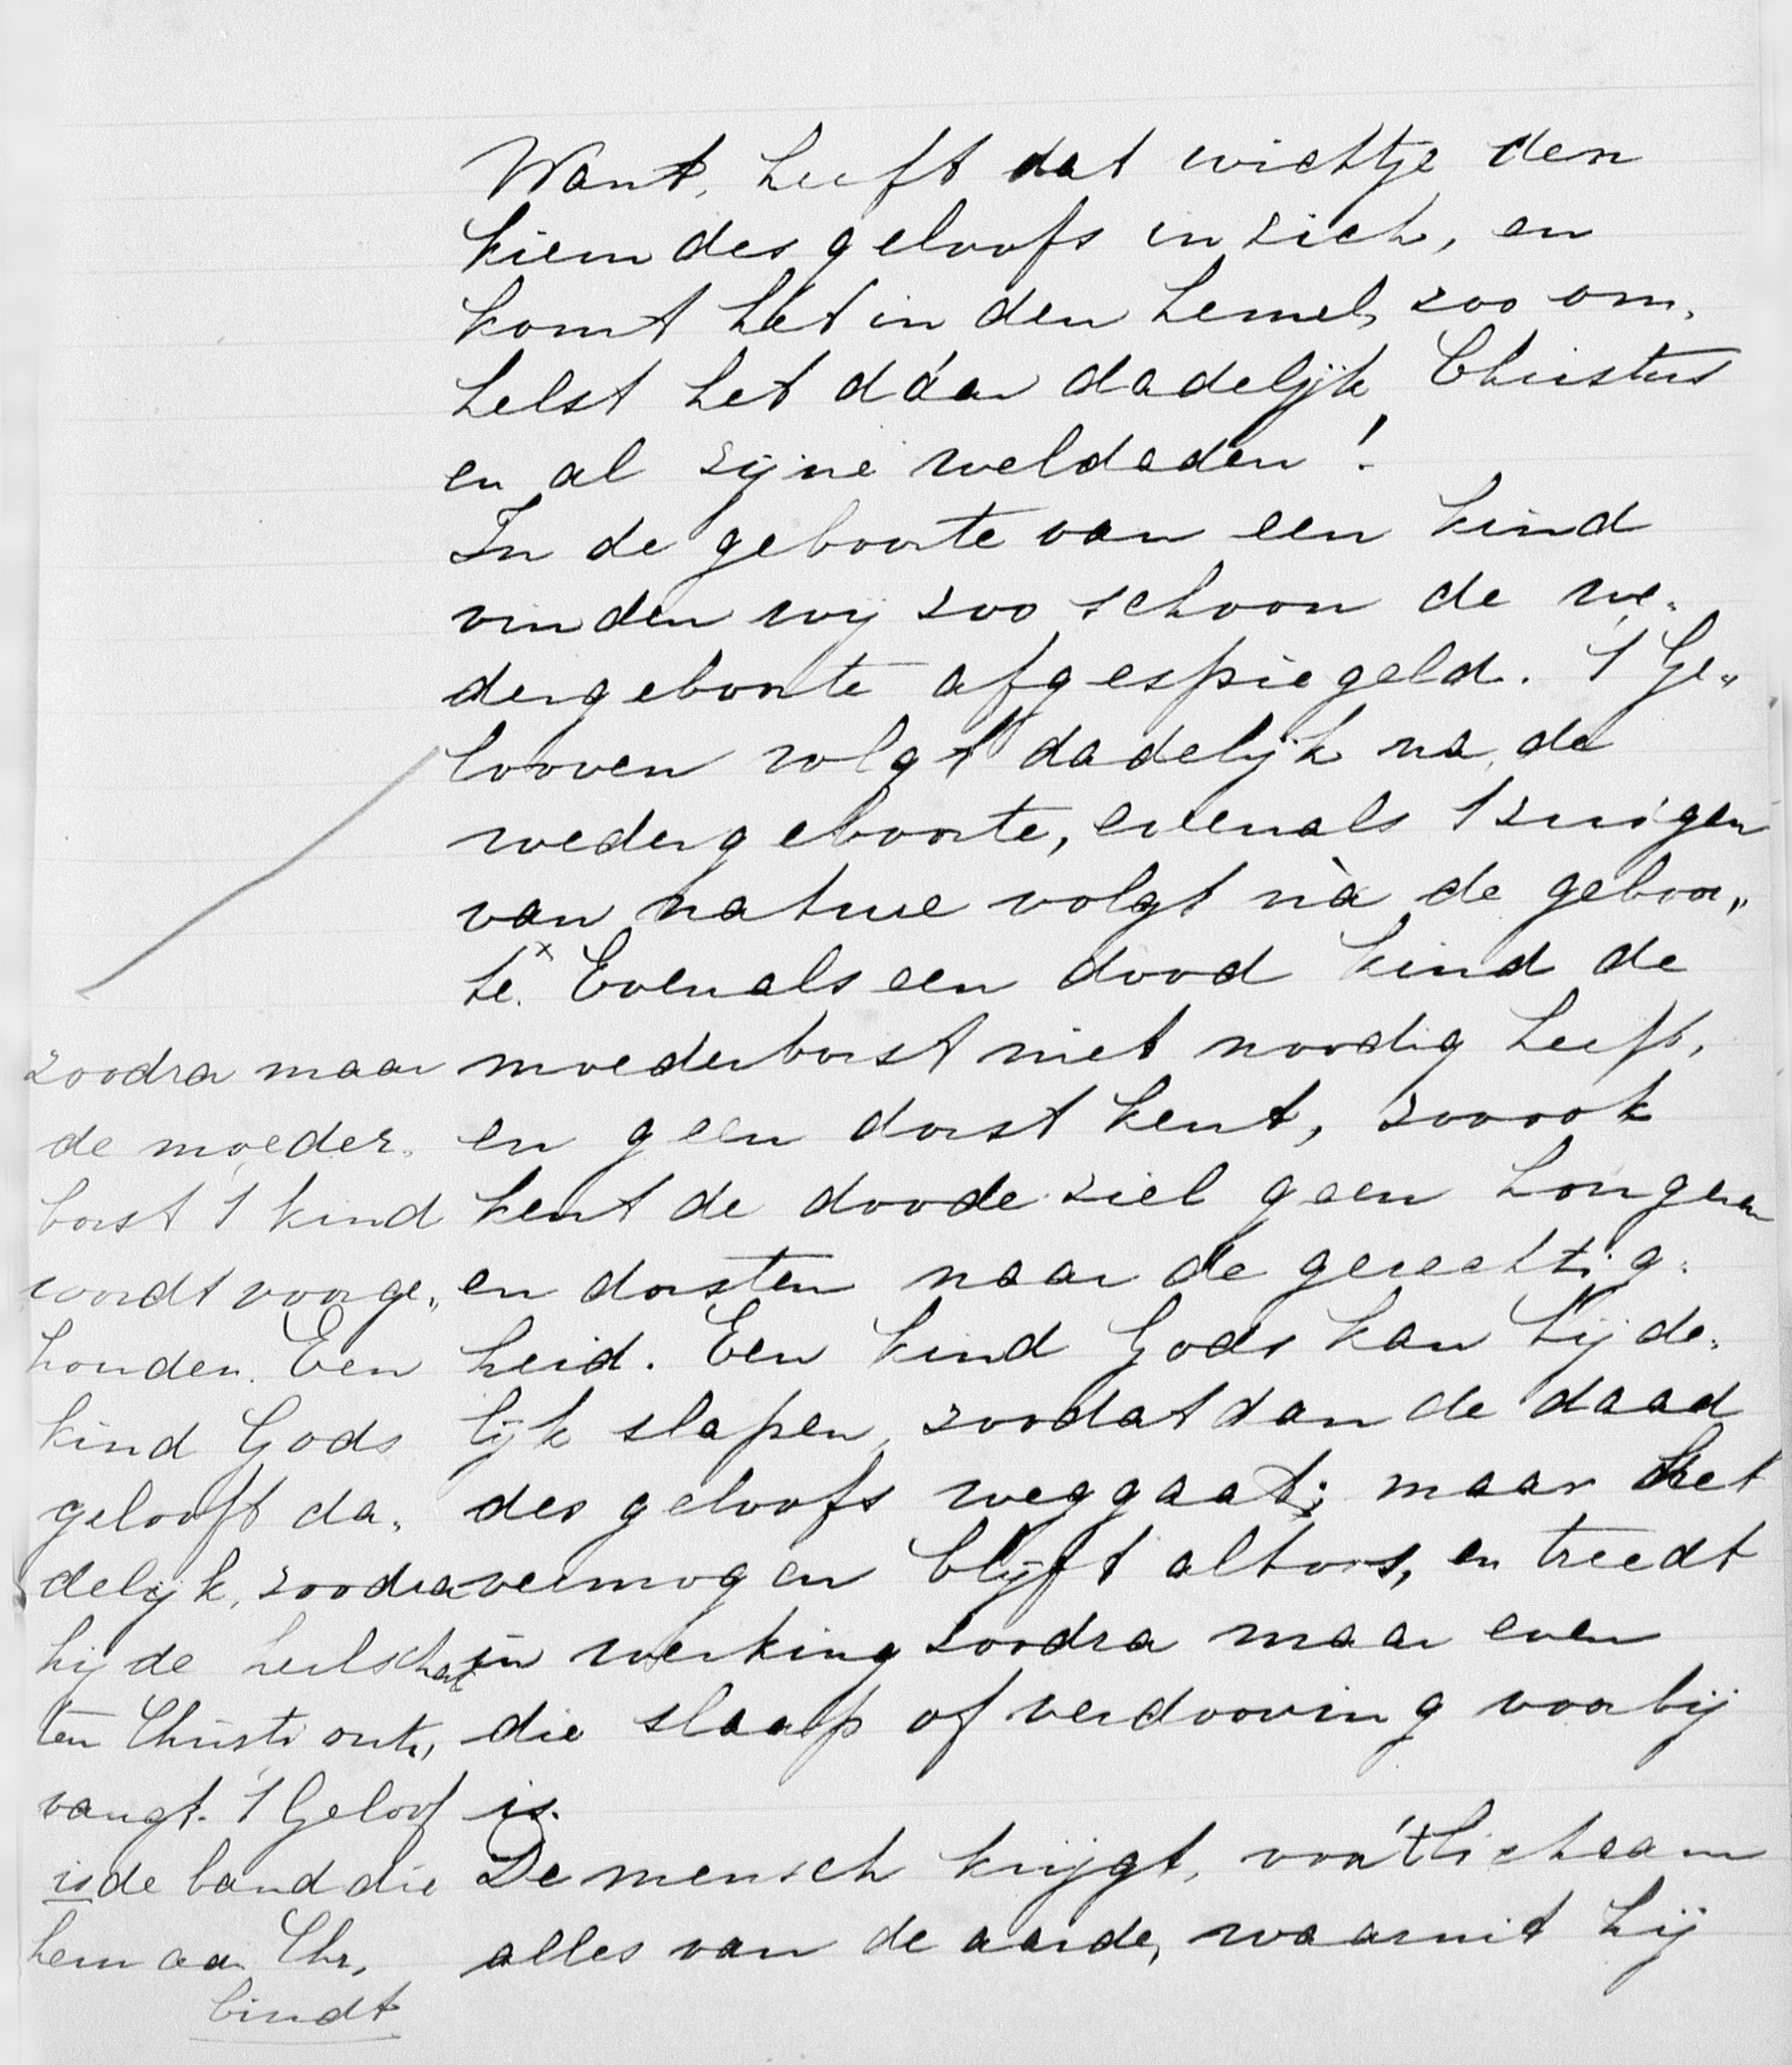 Want, heeft dat wichtje den
kiem des geloofs in zich, en
komt het in den hemel, zoo om-
helst het dáar dadelijk Christus
en al zijne weldaden!
In de geboorte van een kind
vinden wij zoo schoon de we-
dergeboorte afgespiegeld. 't Ge-
looven volgt dadelijk na de
wedergeboorte, evenals 't zuigen
van nature volgt nà de geboor-
te.x Evenals een dood kind de
moederborst niet noodig heeft,
en geen dorst kent, zooook
kent de doode ziel geen hongeren
en dorsten naar de gerechtig-
heid. Een kind Gods kan tijde-
lijk slapen, zoodat dan de daad
des geloofs weggaat; maar het
vermogen blijft altoos, en treedt
in werking zoodra maar even
die slaap of verdooving voorbij
is.
De mensch krijgt, voor 't lichaam
alles van de aarde, waaruit hij
zoodra maar
de moeder-
borst 't kind
wordt voorge-
houden. Een
kind Gods
gelooft da-
delijk, zoodra
hij de heilschat
ten Christi ont-
vangt. 't Geloof
is de band die
hem aan Chr.
bindt